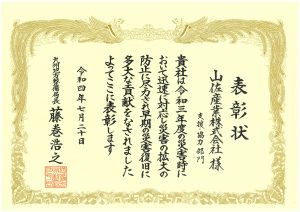 表彰状
支援・協力部門
山佐産業株式会社 様
貴社は令和三年度の災害時に
おいて迅速に対応し災害の拡大の
防止に尽力され早期の災害復旧に
多大な貢献をなされました
よってここに表彰します
令和四年七月二十日
九州地方整備局長 藤巻浩之